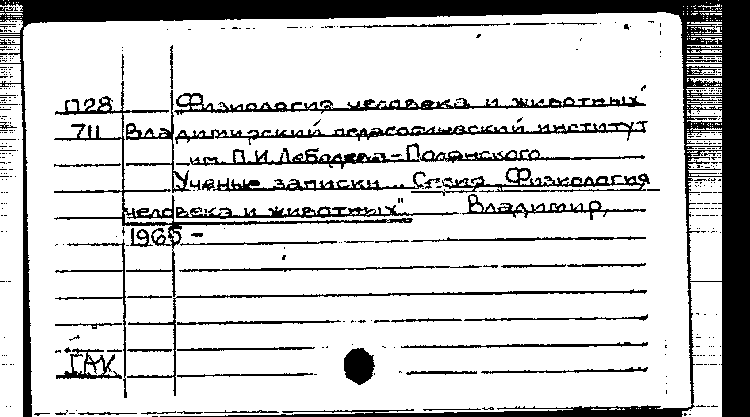 П28 Физиология человека и животных
711 Владимирский педагогический институт
им. П.И. Лебедева-Полянского
Ученые записки... Серия „Физиология
человека и животных" Владимир,
1965 -
ГАК